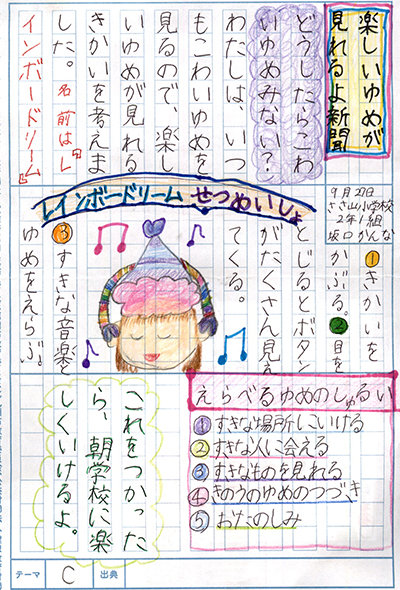 楽しいゆめが
見れるよ新聞
どうしたらこわ
いゆめみない?
わたしは、いつ
もこわいゆめを
見るので、楽し
いゆめが見れる
きかいを考えま
した。名前は「レ
インボードリーム」
9月27日
ささ山小学校
2年1組
坂口かんな
レインボードリームせつめいしょ
①きかいを
かぶる。②目を
とじるとボタン
がたくさん見え
てくる。
③すきな音楽と
ゆめをえらぶ。
えらべるゆめのしゅるい
①すきな場所にいける
②すきな人に会える
③すきなものを見れる
④きのうのゆめのつづき
⑤おたのしみ
これをつかった
ら、朝学校に楽
しくいけるよ。
テーマ C 出典